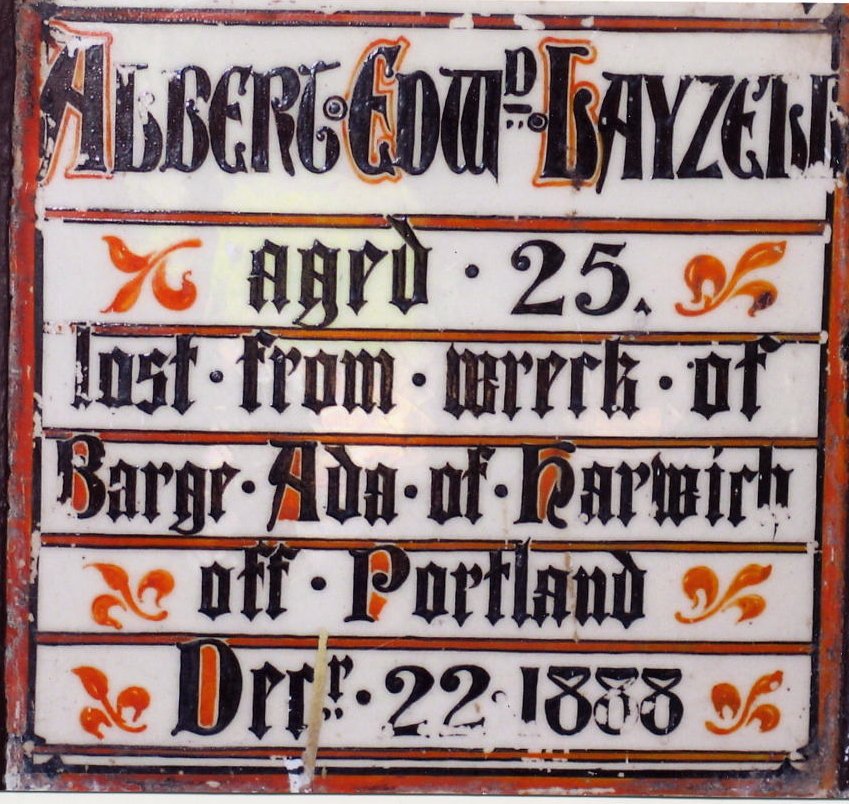 ALBERT · EDWᴰ · LAYZELL
aged · 25.
lost · from · wreck · of
Barge · Ada · of · Harwich
off · Portland
Decʳ · 22 · 1888